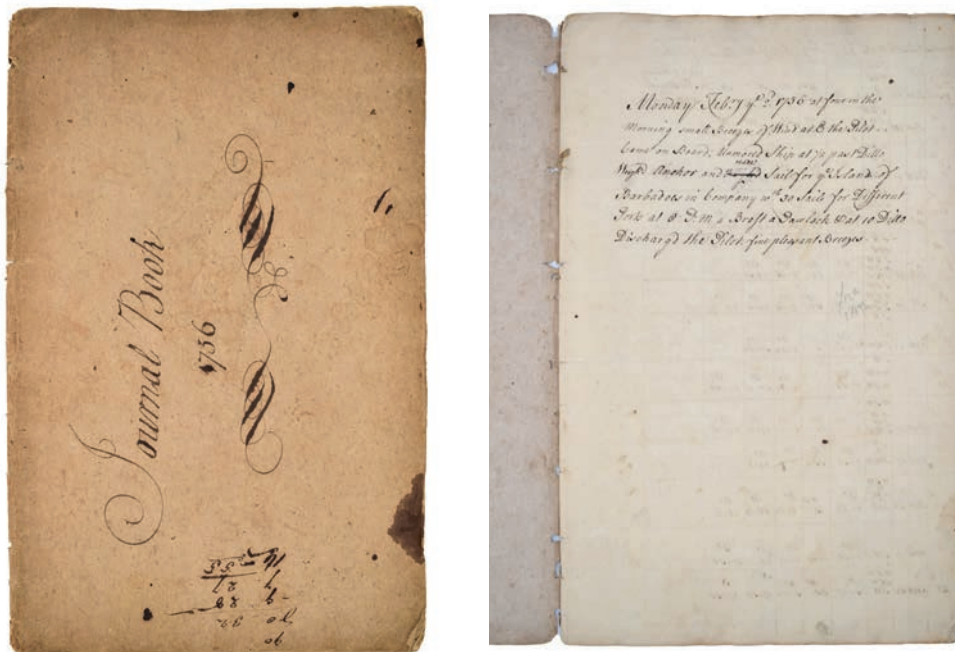 Journal Book
1756
Monday Feb: 7 1756 at four in the
Morning Breezes of Wind at 8 the Pilot
Came on Board, Unmored Ship at ½ past Ditto
Weigh'd Anchor and Sail for yᵉ Island of
Barbadoes in Company wᵗʰ 30 Sails for Different
Ports at 6 P.M. a Brest a & at 10 Ditto
Discharg'd the Pilot fine pleasant Breezes